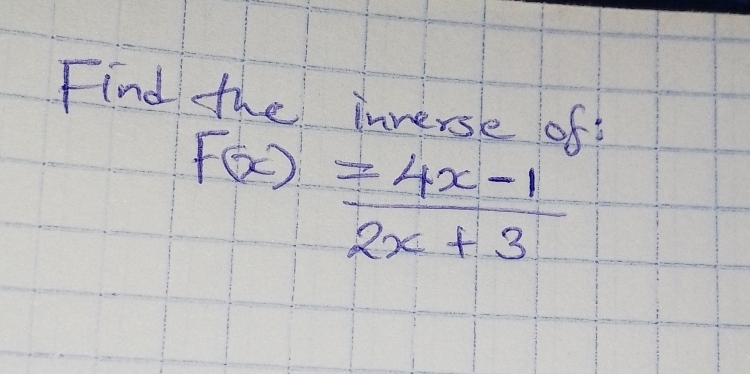 Find the inverse of:
F(x) = 4x - 1
2x + 3